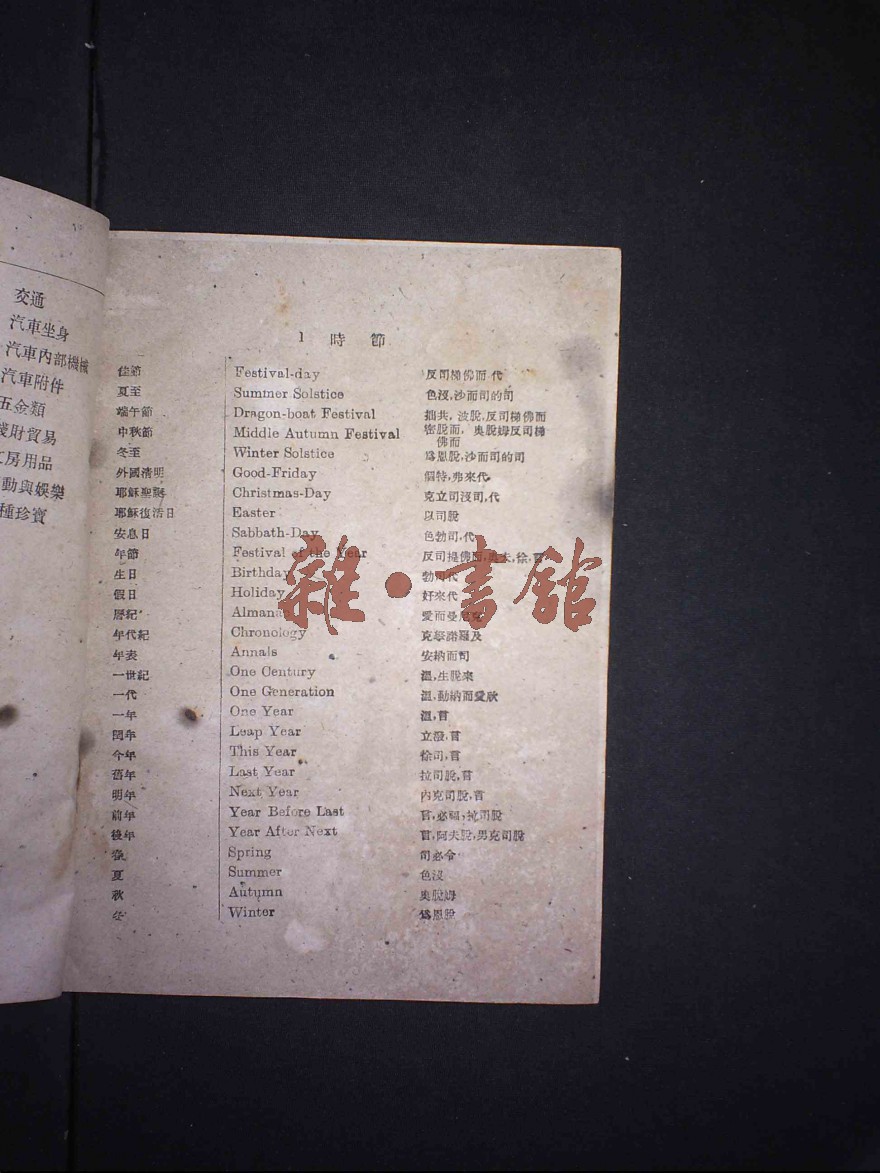 交通
汽車坐身
汽車內部機械
汽車附件
五金類
錢財貿易
房用品
動與娛樂
種珍寶
1 時節
佳節 Festival-day 反司梯佛而代
夏至 Summer Solstice 色沒,沙而司的司
端午節 Dragon-boat Festival 拙共,波脫,反司梯佛而
中秋節 Middle Autumn Festival 密脫而,奧脫姆反司梯
佛而
冬至 Winter Solstice 為恩脫,沙而司的司
外國清明 Good-Friday 個特,弗來代
耶穌聖誕 Christmas-Day 克立司沒司,代
耶穌復活日 Easter 以司脫
安息日 Sabbath-Day 色勃司,代
年節 Festival of the Year 反司提佛而,
生日 Birthday
假日 Holiday 好來代
曆紀 Almanac 愛而曼尼克
年代紀 Chronology 克拏諾羅及
年表 Annals 安納而司
一世紀 One Century 溫,生脫來
一代 One Generation 溫,動納而愛歇
一年 One Year 溫,
閏年 Leap Year 立潑,
今年 This Year 徐司,
舊年 Last Year 拉司脫,
明年 Next Year 內克司脫,
前年 Year Before Last 必福,拉司脫
後年 Year After Next 阿夫脫,男克司脫
春 Spring 司必令
夏 Summer 色沒
秋 Autumn 奧脫姆
冬 Winter 為恩脫
雜·書館